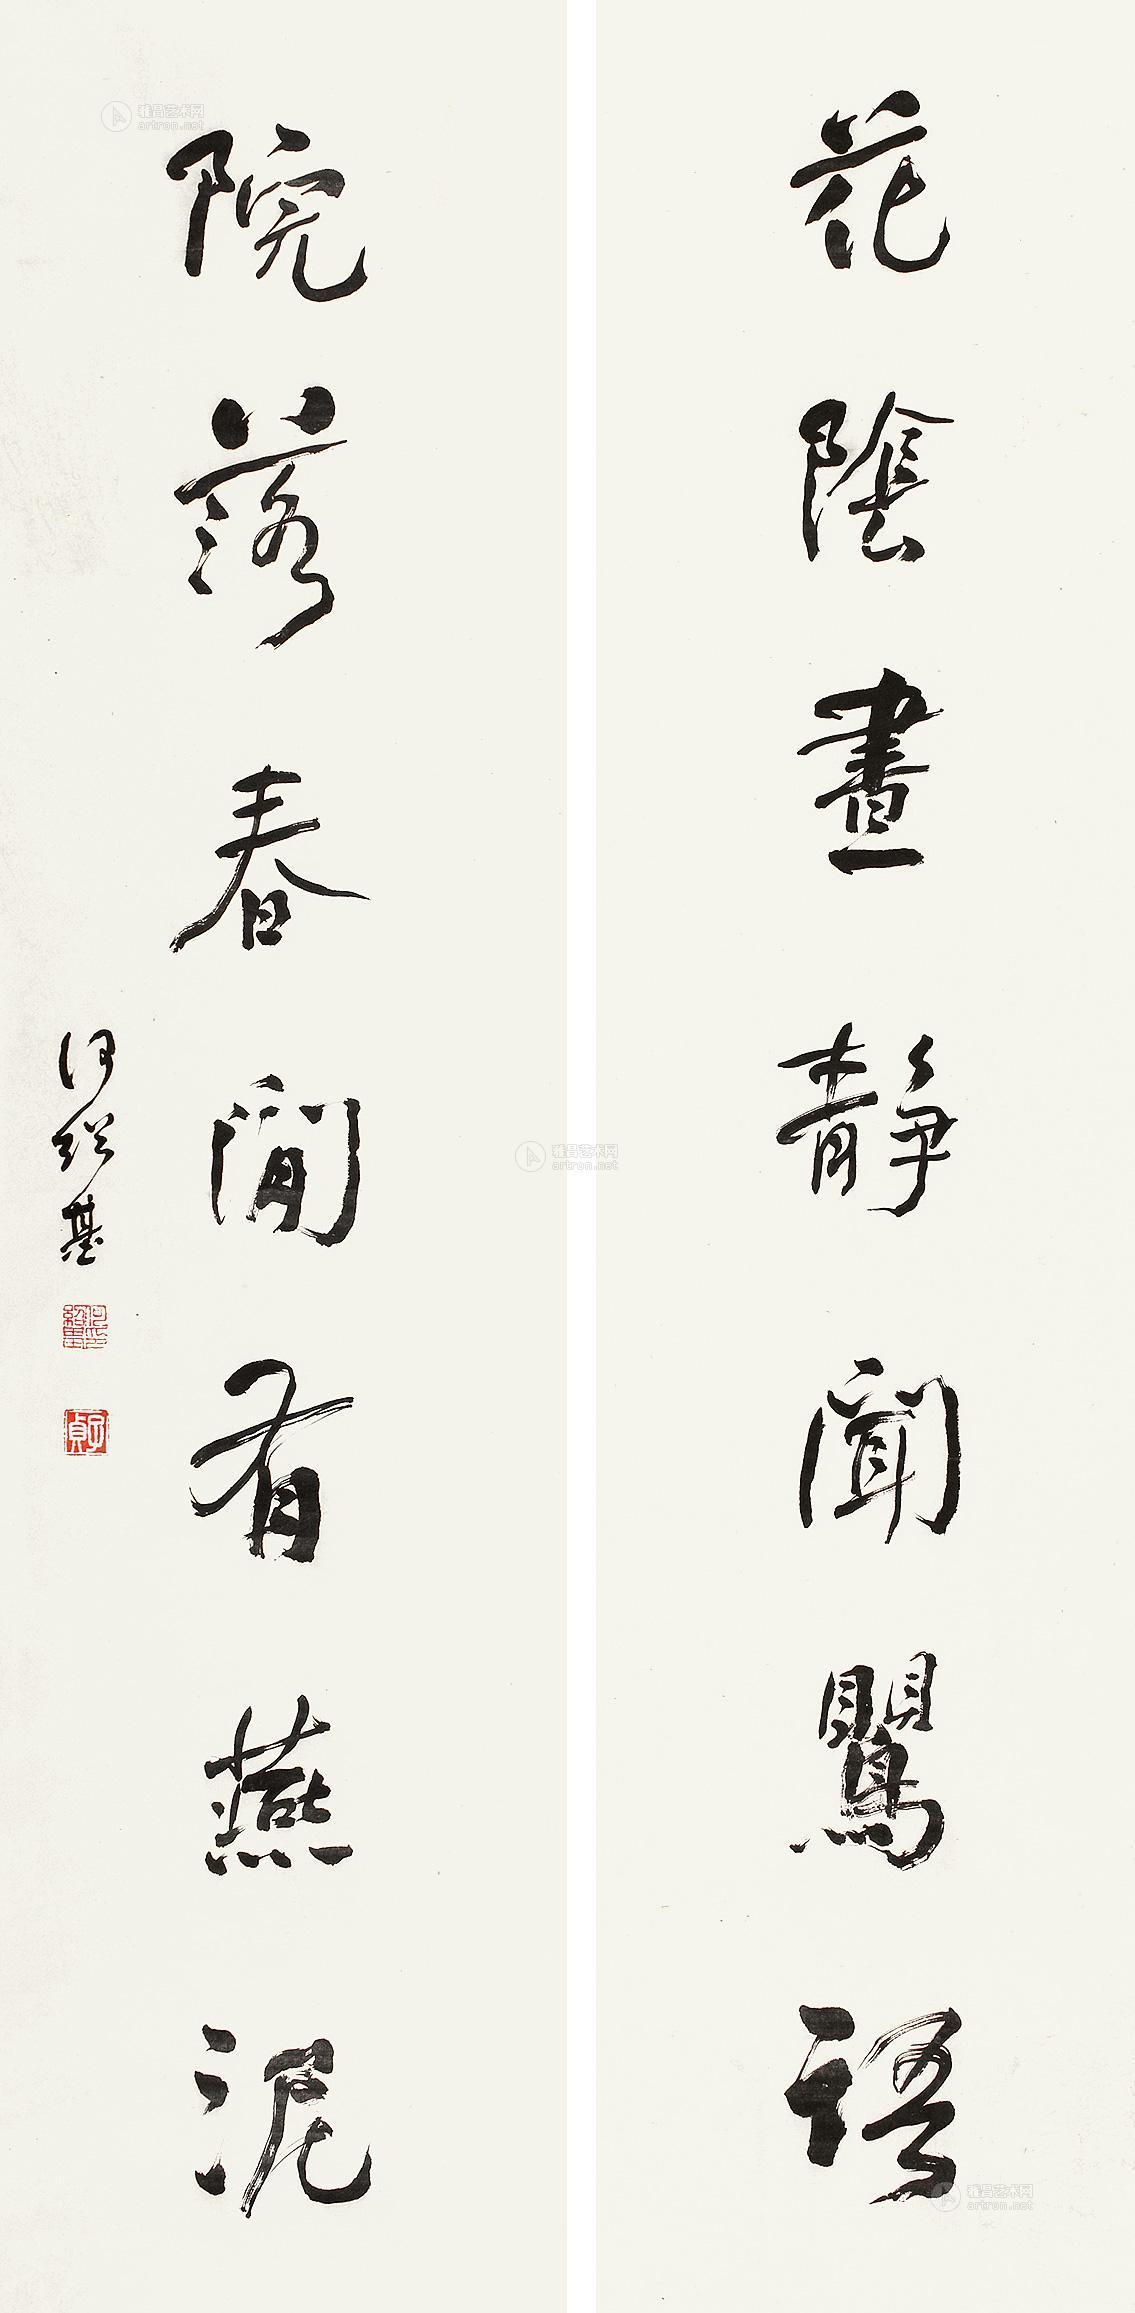 花陰晝靜聞鸎語
院落春閒有燕泥
何紹基
何紹基印
子貞
雅昌艺术网
artron.net
雅昌艺术网
artron.net
雅昌艺术网
artron.net